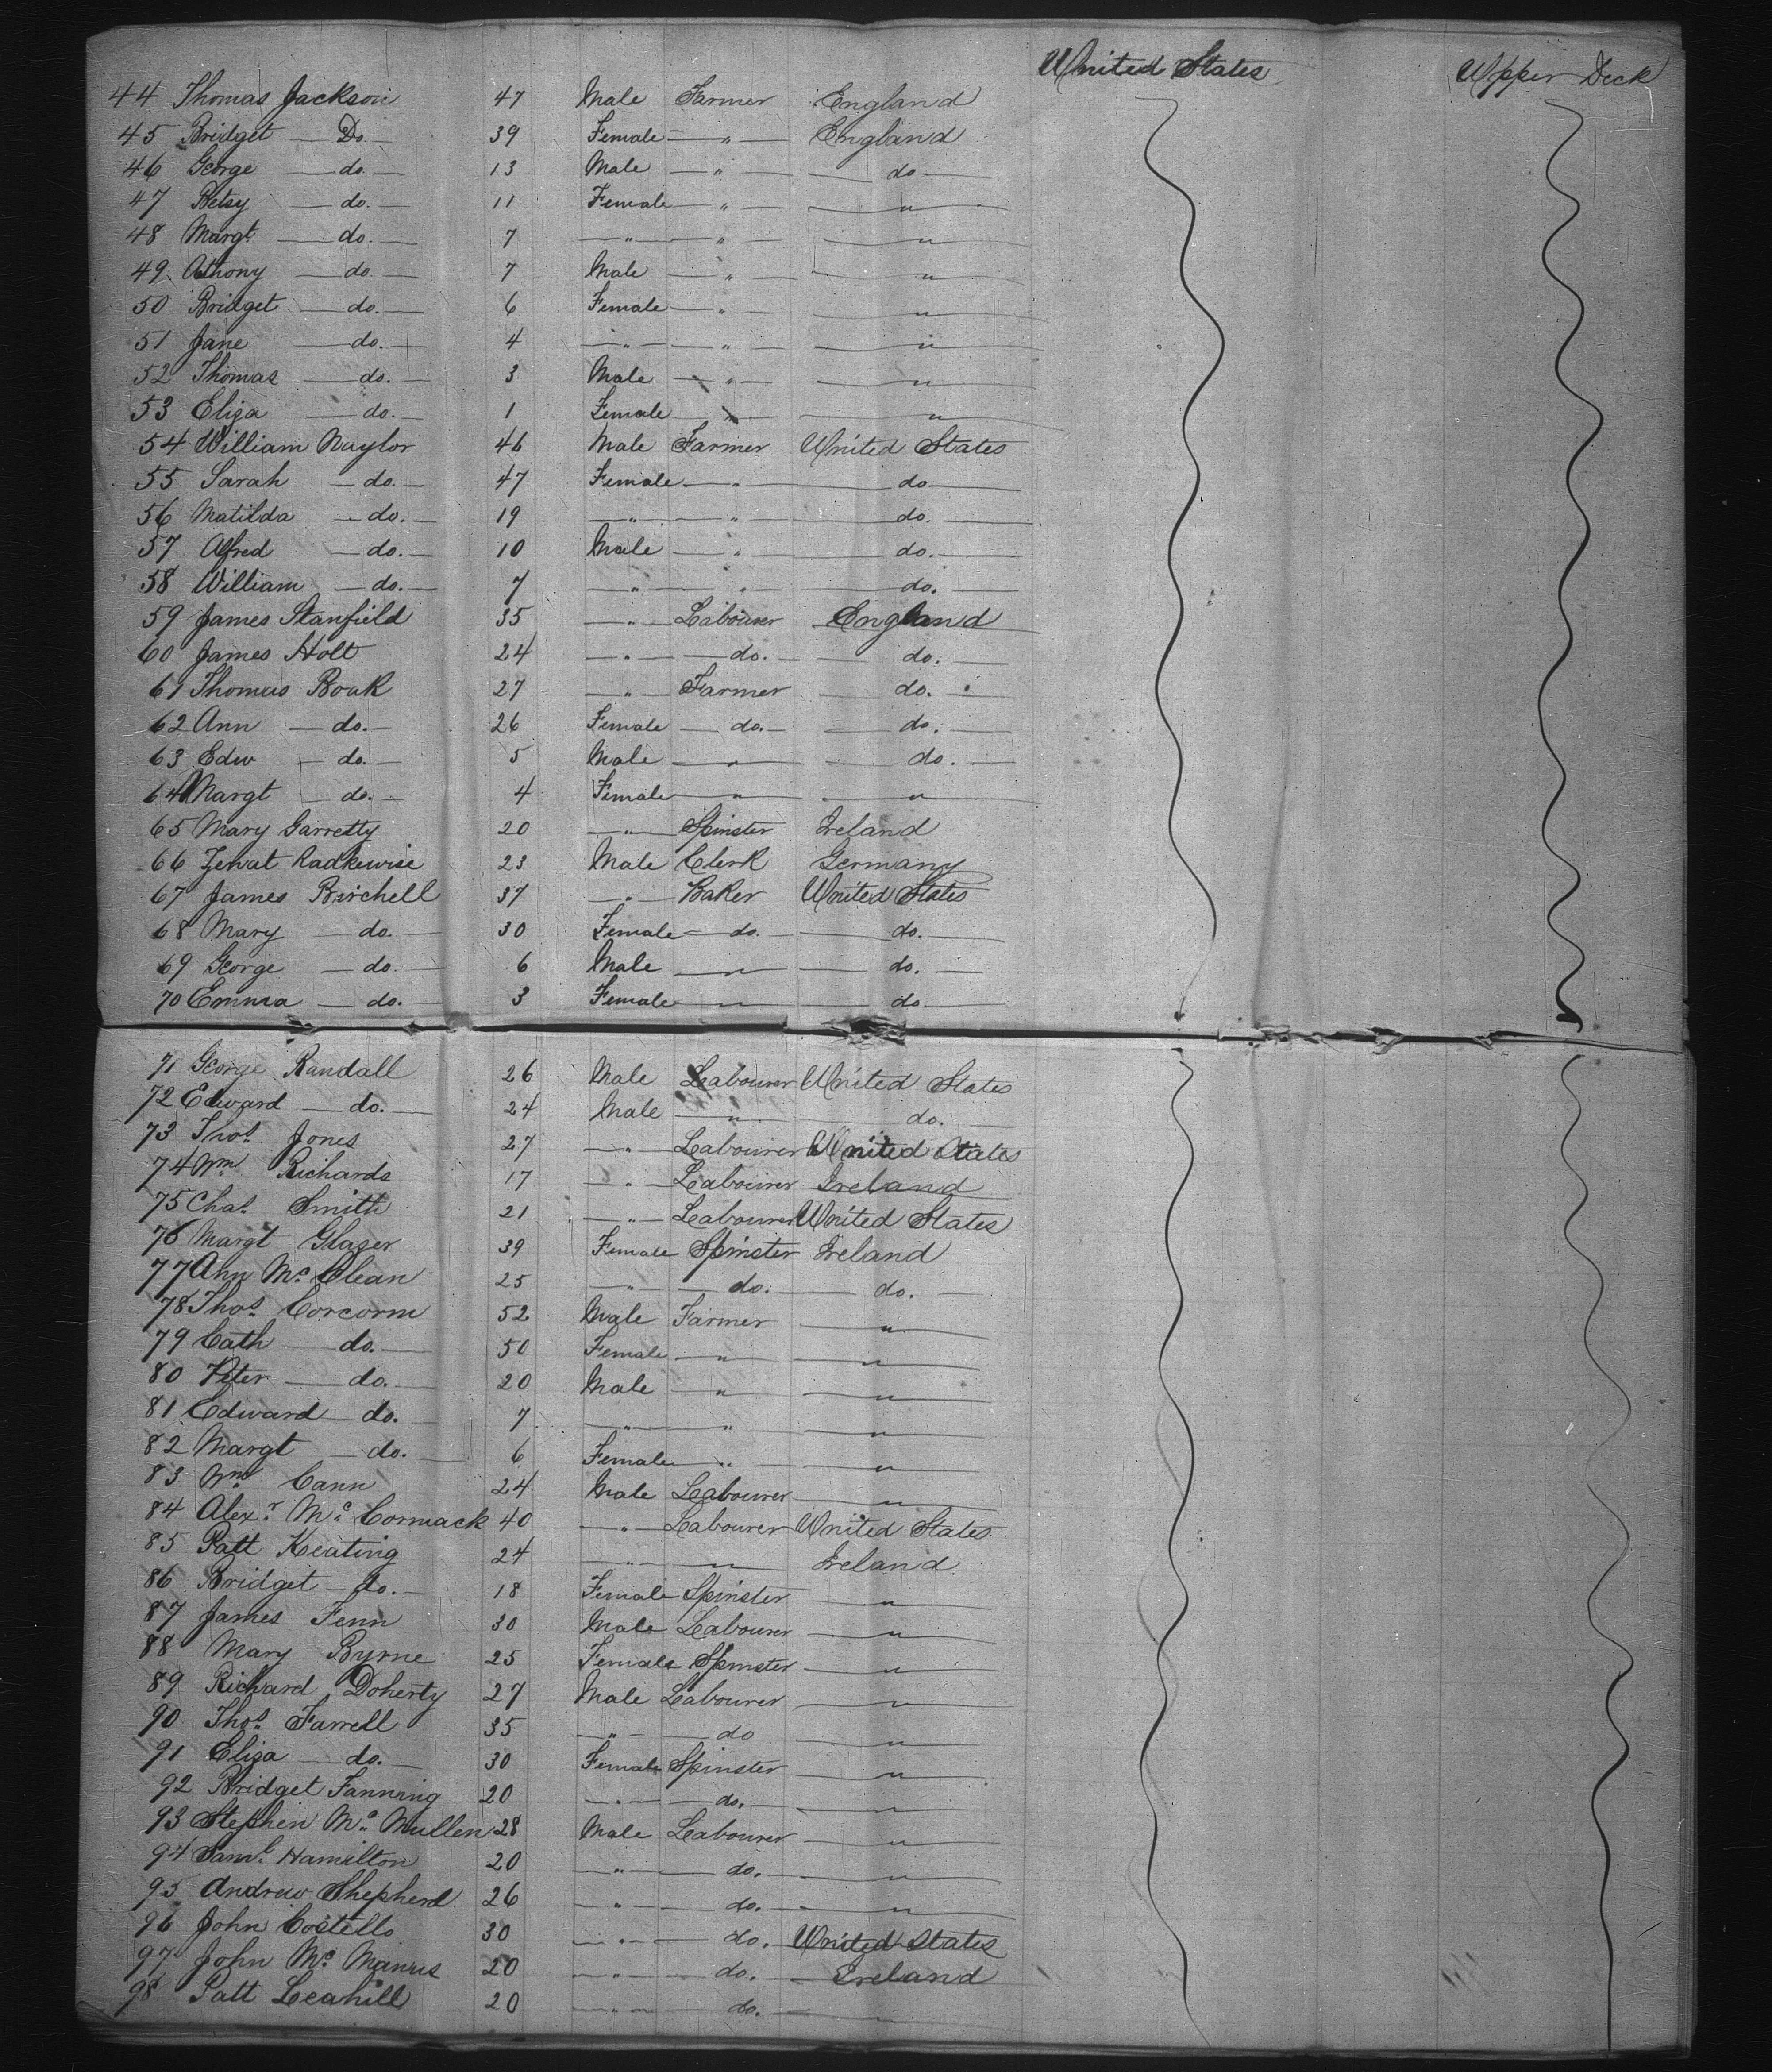 United States Upper Deck
44 Thomas Jackson 47 Male Farmer England
45 Bridget — Do. — 39 Female — " — England
46 George — do. — 13 Male — " — — do —
47 Betsy — do. — 11 Female — " — — " —
48 Margt — do. — 7 — " — — " — — " —
49 Athony — do. — 7 Male — " — — " —
50 Bridget — do. — 6 Female — " — — " —
51 Jane — do. — 4 — " — — " — — " —
52 Thomas — do. — 3 Male — " — — " —
53 Eliza — do. — 1 Female — " — — " —
54 William Naylor 46 Male Farmer United States
55 Sarah — do. — 47 Female — " — — do —
56 Matilda — do. — 19 — " — — " — — do. —
57 Alfred — do. — 10 Male — " — — do. —
58 William — do. — 7 — " — — " — — do. —
59 James Stanfield 35 — " — Labourer England
60 James Holt 24 — " — — do. — — do. —
61 Thomas Boak 27 — " — Farmer — do. —
62 Ann — do. — 26 Female — do. — — do. —
63 Edw — do. — 5 Male — " — — do. —
64 Margt — do. — 4 Female — " — — " —
65 Mary Garretty 20 — " — Spinster Ireland
66 Radkewise 23 Male Clerk Germany
67 James Birchell 37 — " — Baker United States
68 Mary — do. — 30 Female — do. — — do. —
69 George — do. — 6 Male — " — — do. —
70 Emma — do. — 3 Female — " — — do —
71 George Randall 26 Male Labourer United States
72 Edward — do. — 24 Male — " — — do. —
73 Thos. Jones 27 — " — Labourer United States
74 Wm Richards 17 — " — Labourer Ireland
75 Chas. Smith 21 — " — Labourer United States
76 Margt Glaser 39 Female Spinster Ireland
77 Ann Mc Clean 25 — " — — do. — — do. —
78 Thos. Corcorm 52 Male Farmer — " —
79 Cath — do. — 50 Female — " — — " —
80 Peter — do. — 20 Male — " — — " —
81 Edward — do. — 7 — " — — " — — " —
82 Margt — do. — 6 Female — " — — " —
83 Wm. Cann 24 Male Labourer — " —
84 Alexr. Mc Cormack 40 — " — Labourer United States
85 Patt Keating 24 — " — — " — Ireland
86 Bridget — do. — 18 Female Spinster — " —
87 James Fenn 30 Male Labourer — " —
88 Mary Byrne 25 Female Spinster — " —
89 Richard Doherty 27 Male Labourer — " —
90 Thos. Farrell 35 — " — — do — " —
91 Eliza — do. — 30 Female Spinster — " —
92 Bridget Fanning 20 — " — — do. — — " —
93 Stephen Mc Mullen 28 Male Labourer — " —
94 Saml. Hamilton 20 — " — — do. — — " —
95 Andrew Shepherd 26 — " — — do. — — " —
96 John Costello 30 — " — do. United States
97 John Mc Manus 20 — " — do. — Ireland
98 Patt Leahill 20 — " — — do. —